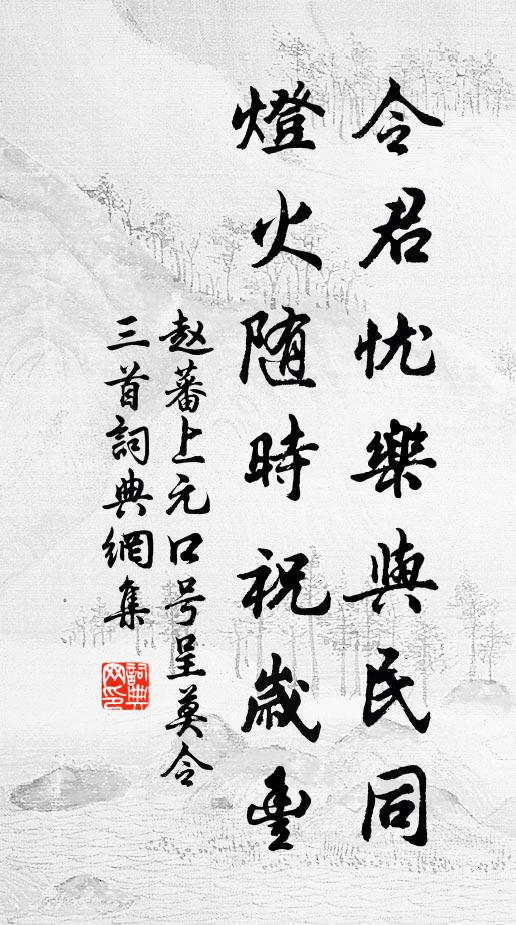 令君忧樂與民同
燈火随時祝歲豐
赵蕃上元口号呈莫令
三首詞典網集
詞典
网印